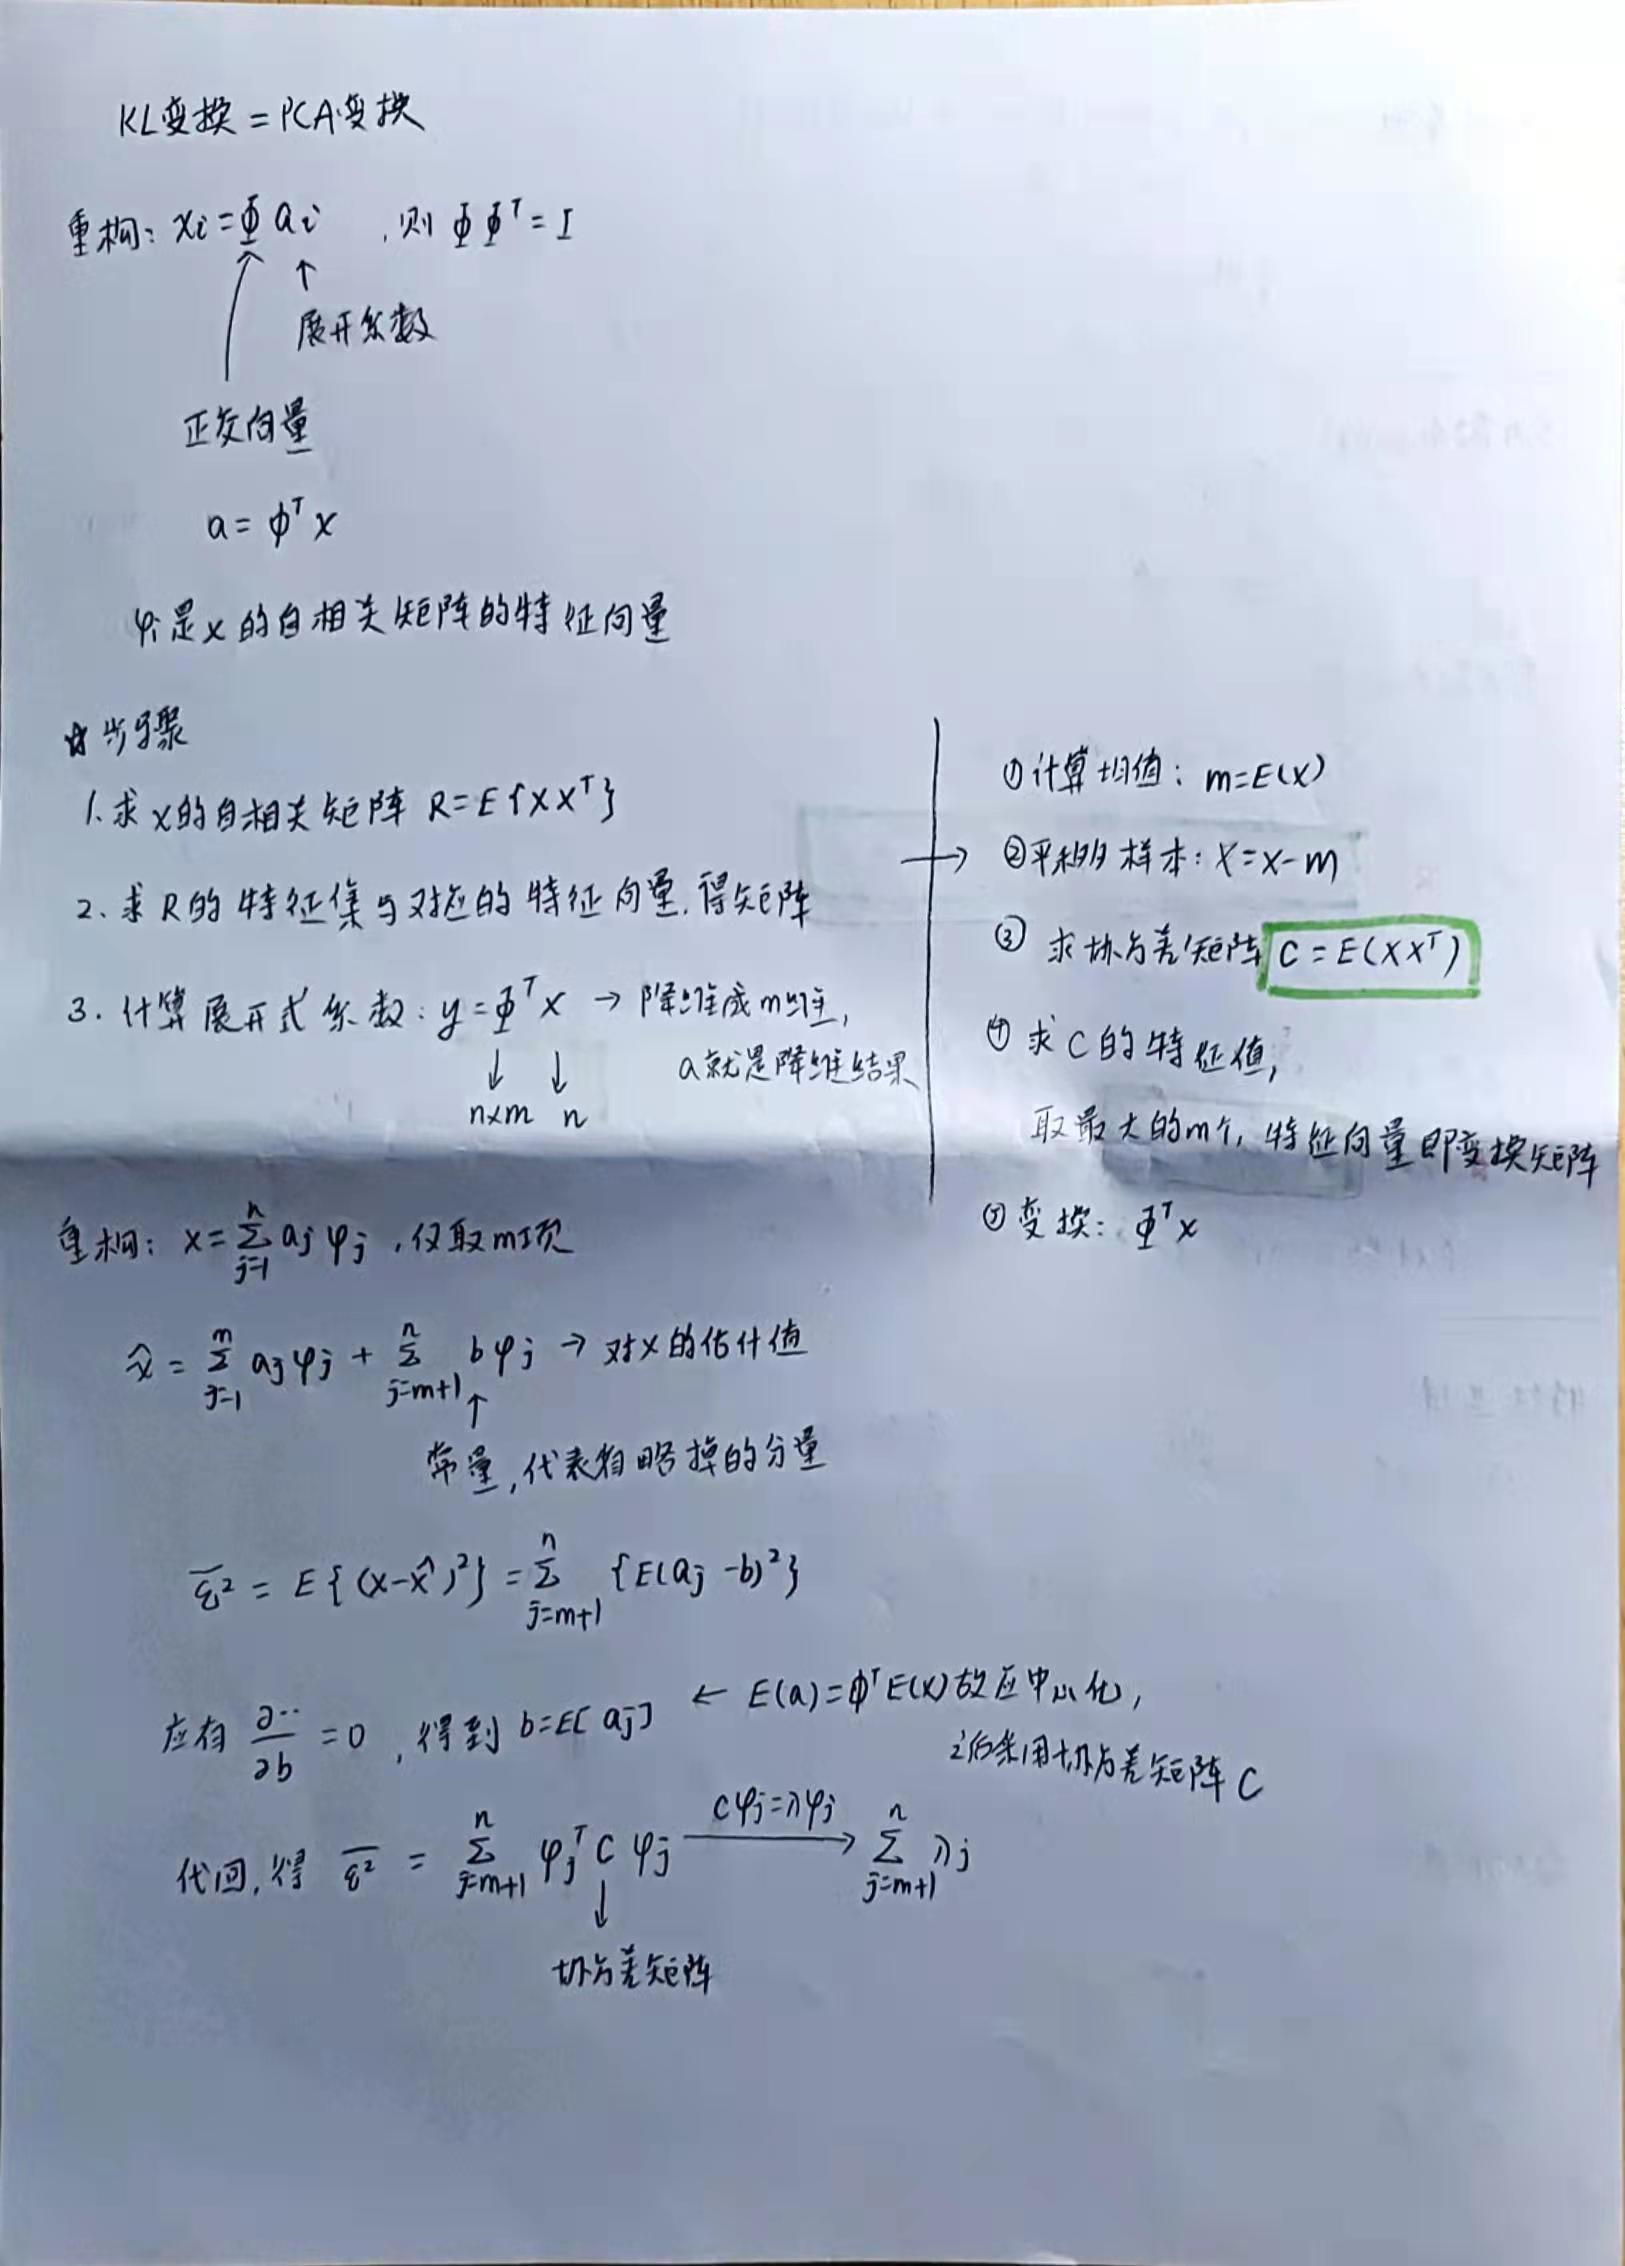 KL变换=PCA变换
重构: xi=Φai ,则ΦΦᵀ=I
↑ ↑
展开系数
正交向量
a=ϕᵀx
φi是x的自相关矩阵的特征向量
☆步骤
1.求x的自相关矩阵 R=E{XXᵀ}
2.求R的特征集与对应的特征向量.得矩阵
3.计算展开式系数: y=Φᵀx → 降维成m维,
↓ ↓ a就是降维结果
n×m n
→
①计算均值: m=E(X)
②平移样本: X=x-m
③求协方差矩阵 C=E(XXᵀ)
④求C的特征值,
取最大的m个,特征向量即变换矩阵
⑤变换: Φᵀx
重构: x=∑ⁿⱼ₌₁ ajφj ,仅取m项
x̂=∑ᵐⱼ₌₁ ajφj + ∑ⁿⱼ₌ₘ₊₁ bφj → 对x的估计值
↑
常量,代表省略掉的分量
ε̅²=E{(x-x̂)²}=∑ⁿⱼ₌ₘ₊₁ {E(aj-b)²}
应有 ∂··/∂b =0 ,得到 b=E[aj] ← E(a)=ϕᵀE(x)故应中心化,
之后采用协方差矩阵C
代回,得 ε̅² = ∑ⁿⱼ₌ₘ₊₁ φjᵀCφj —Cφj=λφj→ ∑ⁿⱼ₌ₘ₊₁ λj
↓
协方差矩阵